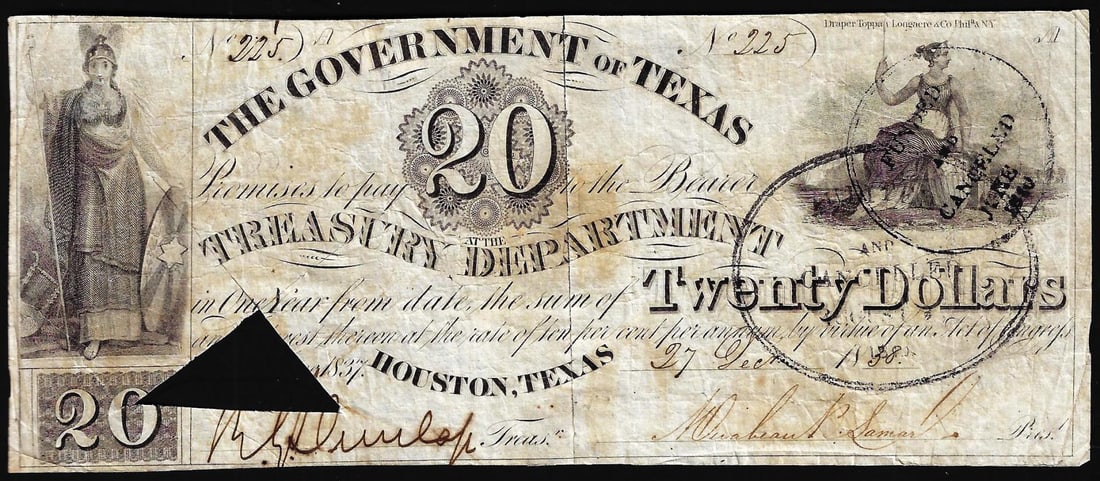 Draper, Toppan, Longacre & Co. Phila. & N.Y.
No 225 A
No 225
THE GOVERNMENT OF TEXAS
20
Promises to pay to the Bearer
AT THE
TREASURY DEPARTMENT
in One Year from date, the sum of Twenty Dollars
thereon at the rate of ten per cent per annum, by virtue of an Act of Congress
1837.
HOUSTON, TEXAS
27 Decr 1838.
20
R. G. Dunlap Treasr.
Mirabeau B. Lamar Prest
FUNDED
AND
CANCELND
JUNE
AND